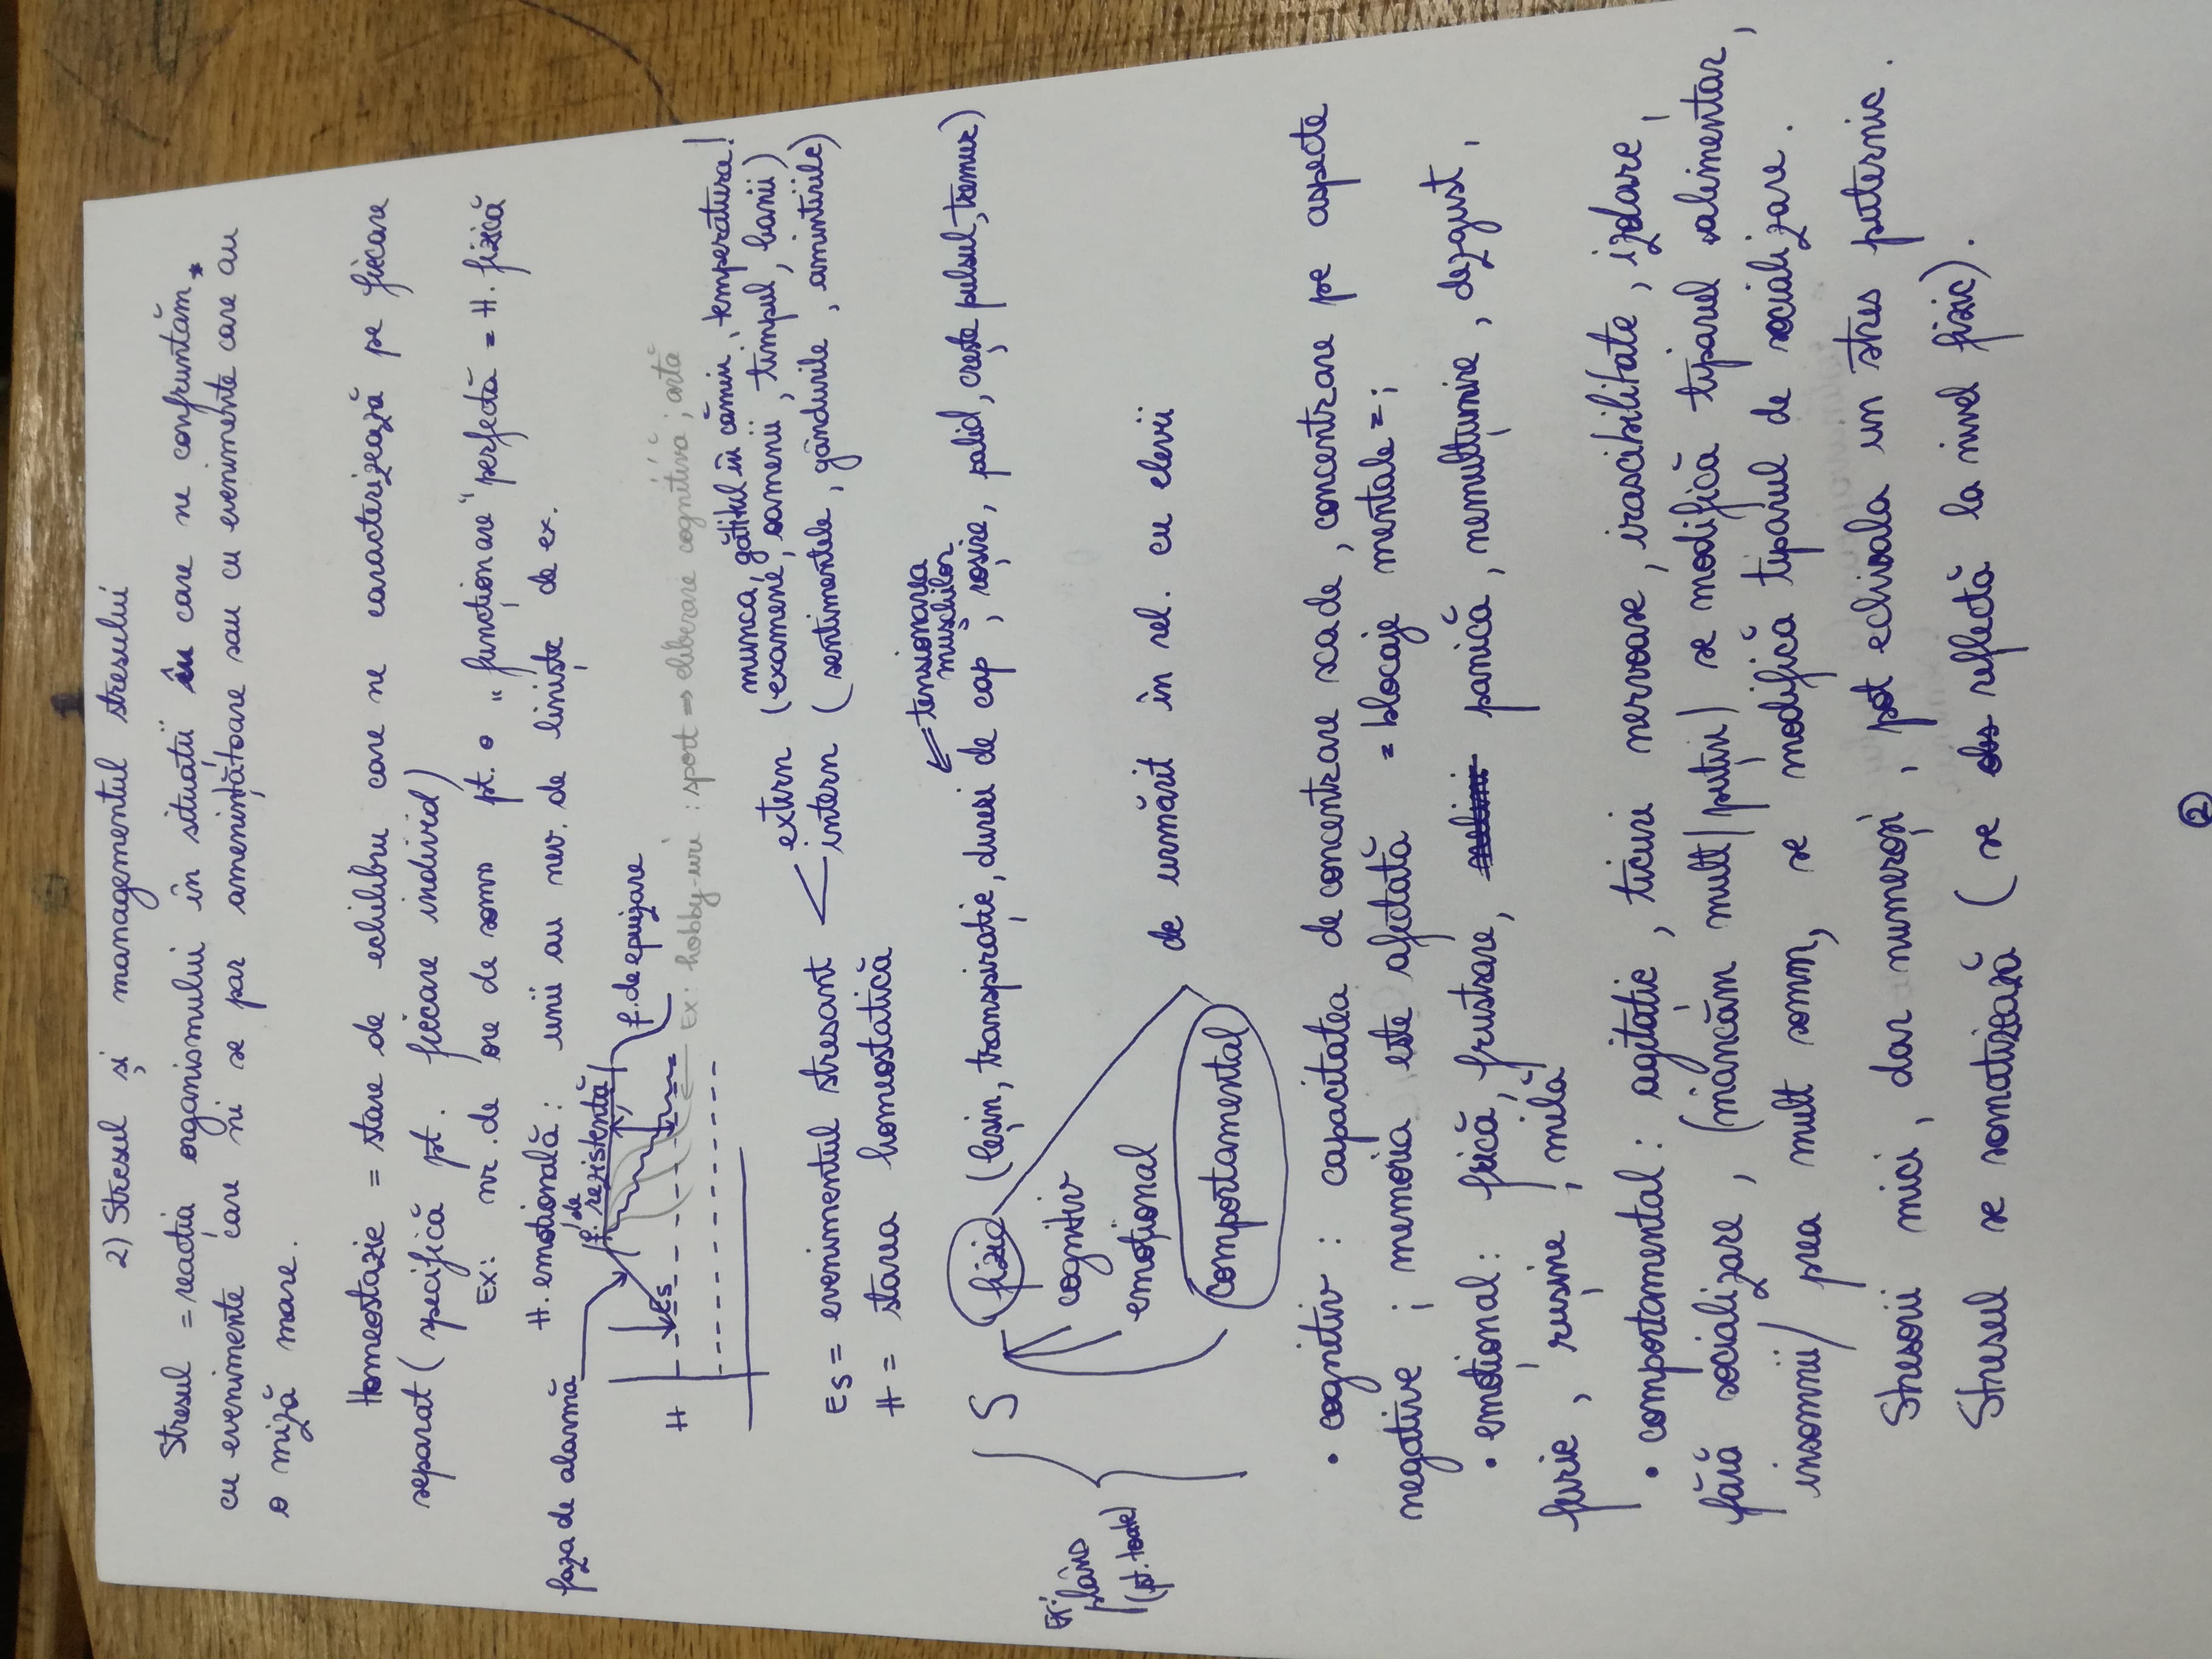 2) Stresul și managementul stresului
Stresul = reacția organismului în situații în care ne confruntăm
cu evenimente care ni se par amenințătoare sau cu evenimente care au
o miză mare.
Homeostazie = stare de echilibru care ne caracterizează pe fiecare
separat (specifică pt. fiecare individ)
Ex: nr. de ore de somn pt. o „funcționare" perfectă = H. fizică
H. emoțională: unii au nev. de liniște de ex.
faza de alarmă
f. de rezistență
f. de epuizare
Es
H
Ex: hobby-uri : sport => eliberare cognitivă ; artă
munca, gătitul în cămin, temperatura!
extern (examene, oamenii, timpul, banii)
Es = evenimentul stresant
intern (sentimentele, gândurile, amintirile)
H = starea homeostatică
tensionarea
mușchilor
S fizic (leșin, transpirație, dureri de cap, roșire, palid, crește pulsul, tremur)
cognitiv
Ex:
plâns
(pt. toate)
emoțional
de urmărit în rel. cu elevii
comportamental
• cognitiv : capacitatea de concentrare scade, concentrare pe aspecte
negative ; memoria este afectată = blocaje mentale = ;
• emoțional : frică, frustrare, panică, nemulțumire, dezgust,
furie, rușine, milă
• comportamental : agitație, ticuri nervoase, irascibilitate, izolare,
fără socializare, (mâncăm mult/puțin) se modifică tiparul alimentar,
insomnii/ prea mult somn, se modifică tiparul de socializare.
Stresorii mici, dar numeroși, pot echivala un stres puternic.
Stresul se somatizează (se obs reflectă la nivel fizic).
2